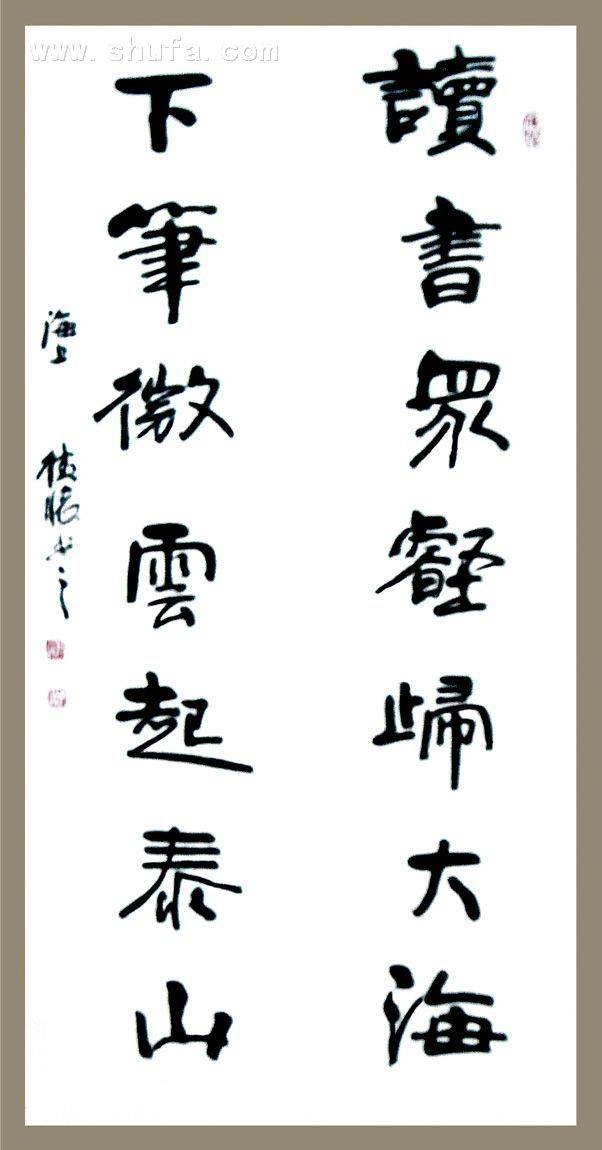 www.shufa.com
讀書眾壑歸大海
下筆微雲起泰山
海上
书之